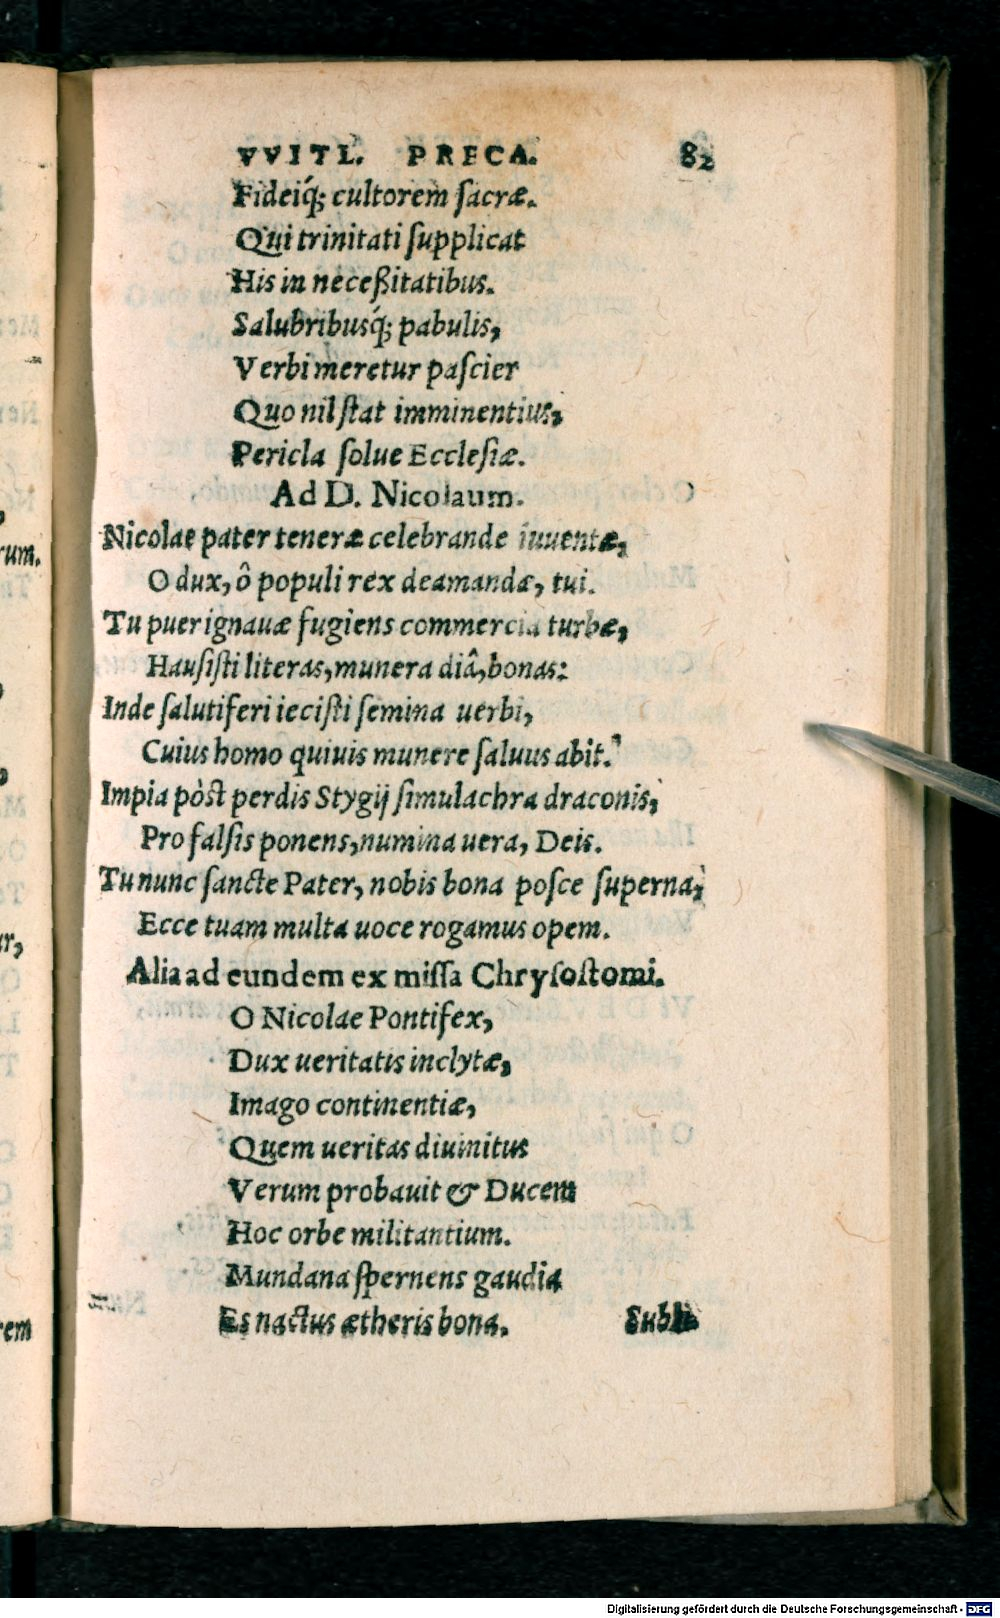 VVITL. PRECA. 82
Fideiq́; cultorem sacræ.
Qui trinitati supplicat
His in neceßitatibus.
Salubribusq́; pabulis,
Verbi meretur pascier
Quo nil stat imminentius,
Pericla solue Ecclesiæ.
Ad D. Nicolaum.
Nicolae pater teneræ celebrande iuuentæ,
O dux, ô populi rex deamandæ, tui.
Tu puer ignauæ fugiens commercia turbæ,
Hausisti literas, munera diâ, bonas:
Inde salutiferi iecisti semina uerbi,
Cuius homo quiuis munere saluus abit.
Impia pòst perdis Stygij simulachra draconis,
Pro falsis ponens, numina uera, Deis.
Tu nunc sancte Pater, nobis bona posce superna,
Ecce tuam multa uoce rogamus opem.
Alia ad eundem ex missa Chrysostomi.
O Nicolae Pontifex,
Dux ueritatis inclytæ,
Imago continentiæ,
Quem ueritas diuinitus
Verum probauit & Ducem
Hoc orbe militantium.
Mundana spernens gaudia
Es nactus ætheris bona. Subli
rum.
ar,
rem
Digitalisierung gefördert durch die Deutsche Forschungsgemeinschaft - DFG